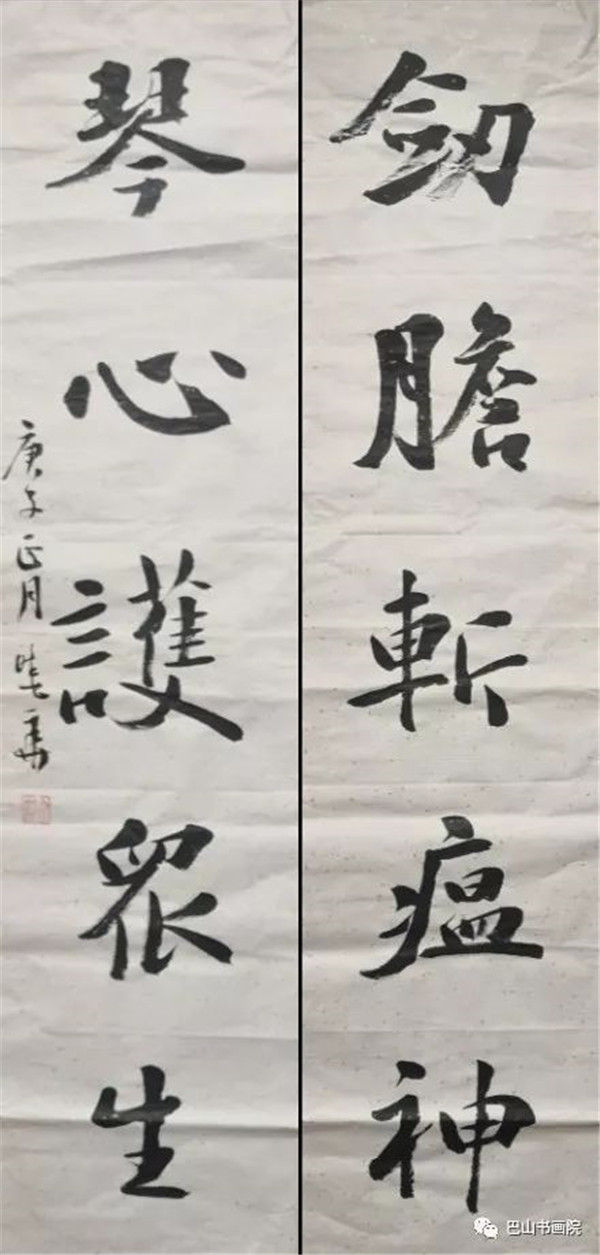 劒膽斬瘟神
琴心護眾生
庚子正月
巴山书画院